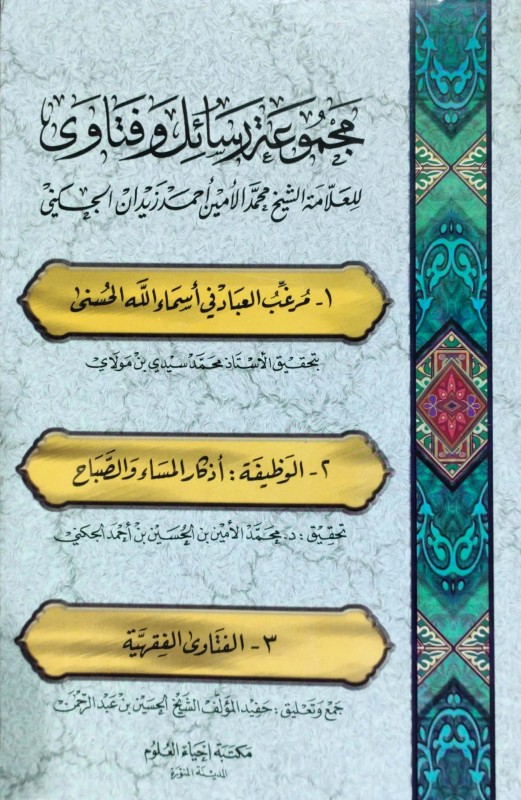 مجموعة رسائل وفتاوى
للعلامة الشيخ محمد الأمين أحمد زيدان الجكني
١- مرغب العباد في أسماء الله الحسنى
بتحقيق الأستاذ محمد سيدي بن مولاي
٢- الوظيفة : أذكار المساء والصباح
تحقيق : د. محمد الأمين بن الحسين بن أحمد الجكني
٣- الفتاوى الفقهية
جمع وتعليق : حفيد المؤلف الشيخ الحسين بن عبد الرحمن
مكتبة إحياء العلوم
المدينة المنورة